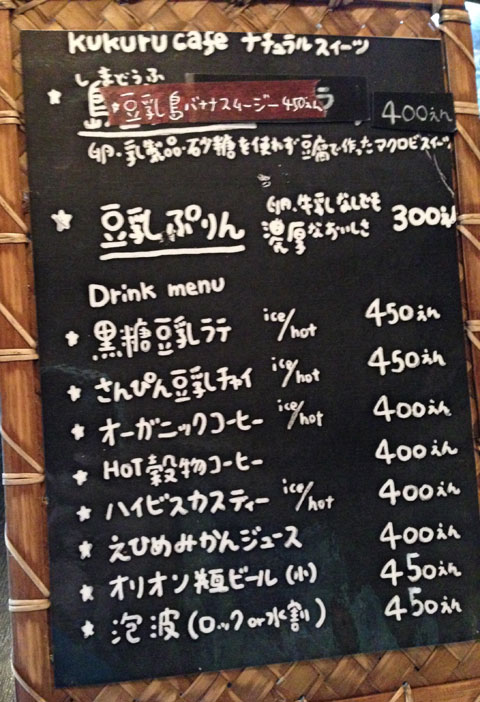 kukuru cafe ナチュラルスイーツ
しまどうふ
★ 島 豆乳島バナナスムージー 450えん ラ 400えん
卵・乳製品・砂糖を使わず豆腐で作ったマクロビスイーツ
★ 豆乳ぷりん 卵、牛乳なしでも 300えん
濃厚なおいしさ
Drink menu
★ 黒糖豆乳ラテ ice/hot 450えん
★ さんぴん豆乳チャイ ice/hot 450えん
★ オーガニックコーヒー ice/hot 400えん
★ HOT穀物コーヒー 400えん
★ ハイビスカスティー ice/hot 400えん
★ えひめみかんジュース 400えん
★ オリオン瓶ビール (小) 450えん
★ 泡波 (ロックor水割) 450えん